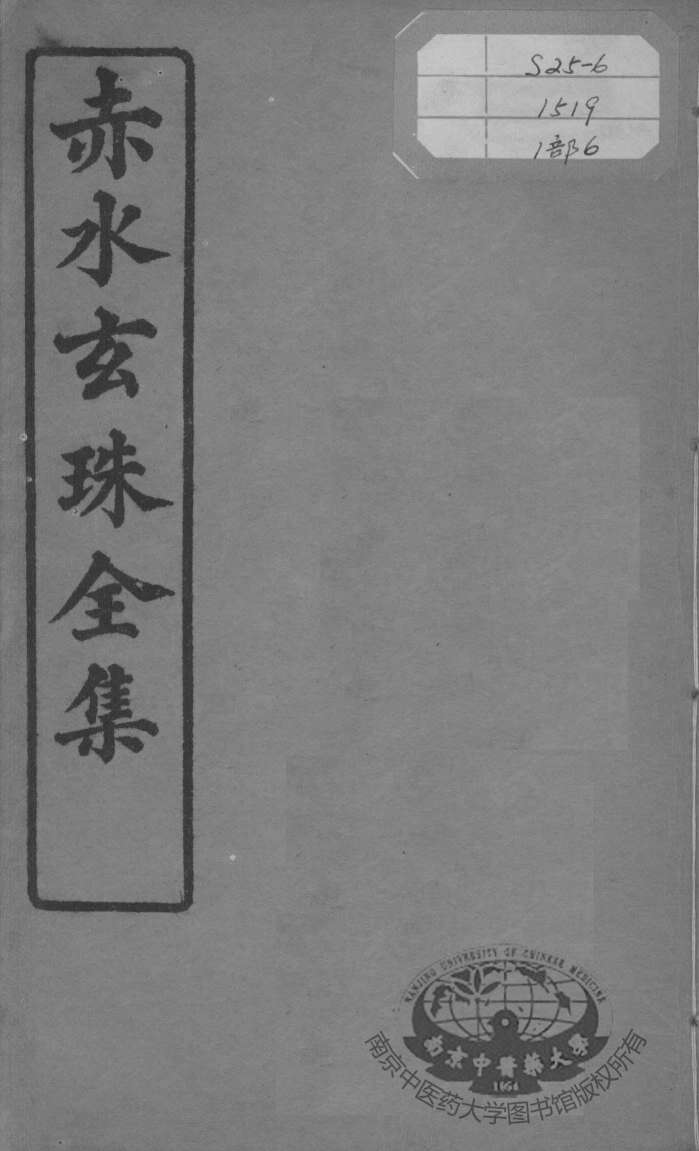 赤水玄珠全集
S25-6
1519
1部6
NANJING UNIVERSITY OF CHINESE MEDICINE
南京中醫藥大學
1954
南京中医药大学图书馆版权所有